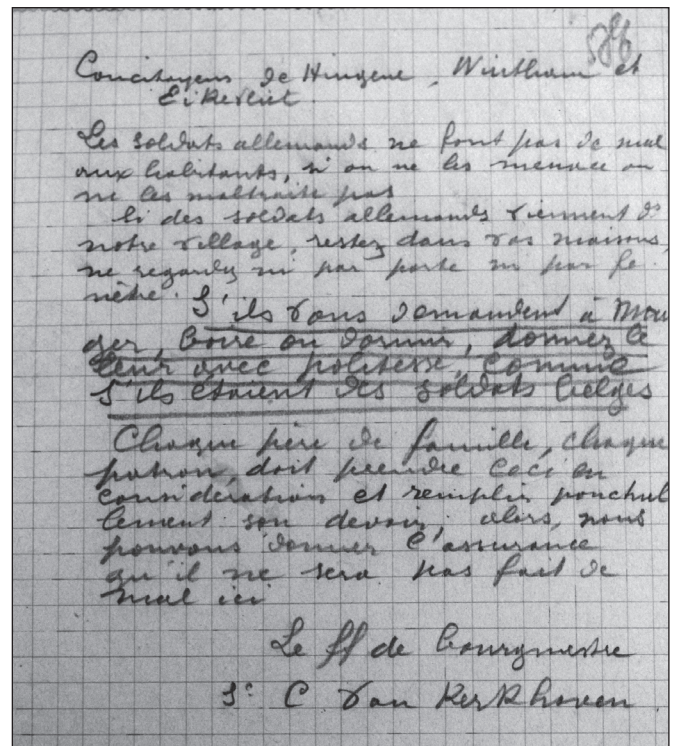 Concitoyens de Hingene, Wintham et
Eikevliet.
Les soldats allemands ne font pas de mal
aux habitants, si on ne les menace ou
ne les maltraite pas
Si des soldats allemands viennent ds
notre village, restez dans vos maisons,
ne regardez ni par porte ni par fe
nêtre. S'ils vous demandent à man
ger, boire ou dormir, donnez le
leur avec politesse, comme
s'ils étaient des soldats belges
Chaque père de famille, chaque
patron, doit prendre ceci en
considération et remplir ponctuel
lement son devoir, alors, nous
pouvons donner l'assurance
qu'il ne sera pas fait de
mal ici
Le ff de bourgmestre
Sé C Van Kerkhoven